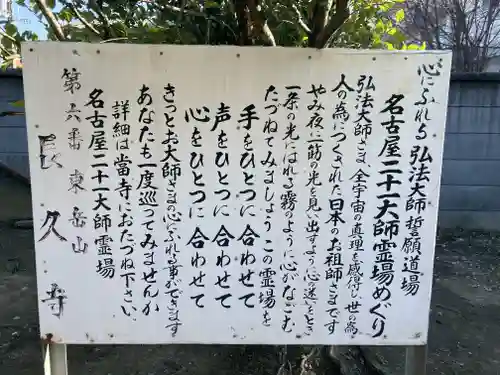 心にふれる弘法大師誓願道場
名古屋二十一大師霊場めぐり
弘法大師さま、全宇宙の真理を感得し、世の為
人の為につくされた日本のお祖師さまです
やみ夜に一筋の光を見い出すよう心の迷いをとき
一条の光にはれる霧のように心がなごむ
たづねてみましょうこの霊場を
手をひとつに合わせて
声をひとつに合わせて
心をひとつに合わせて
きっとお大師さまの心にふれる事ができます
あなたも一度巡ってみませんか
詳細は當寺におたづね下さい、
名古屋二十一大師霊場
第六番東岳山
長久寺